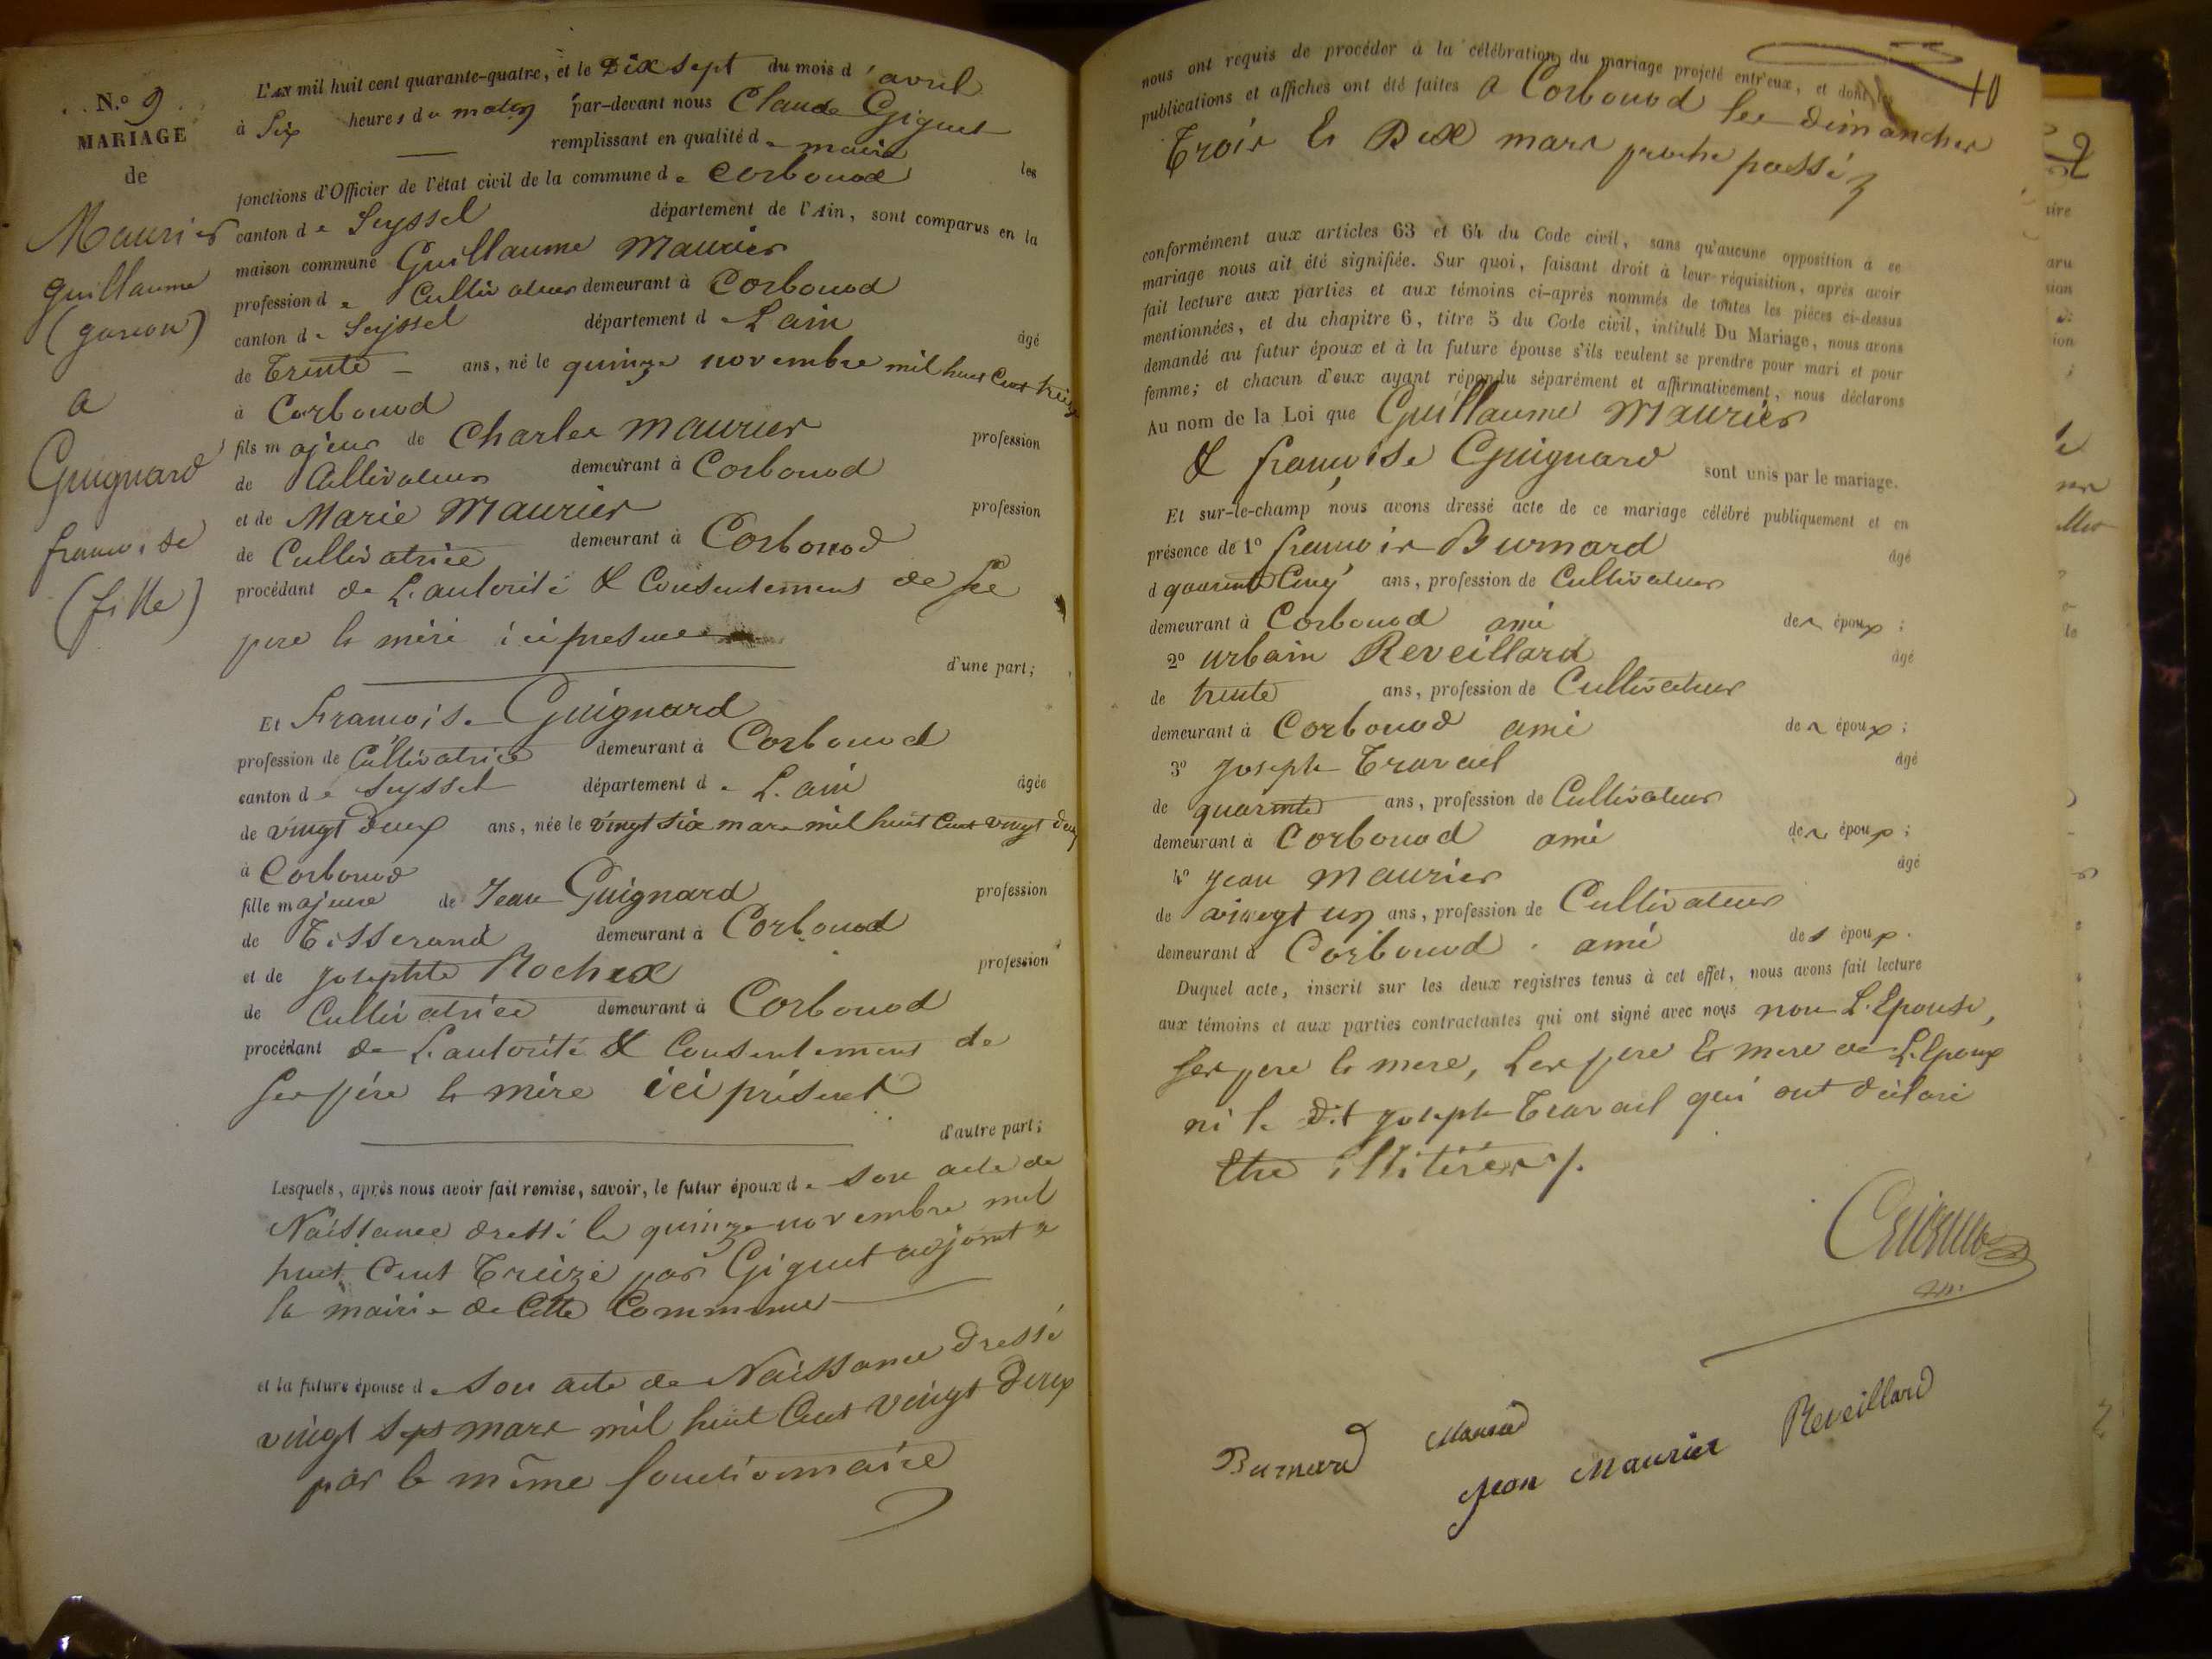 N.o 9
MARIAGE
de
Maurier
guillaume
(garcon)
a
Guignard
francoise
(fille)
L'AN mil huit cent quarante-quatre, et le Dix sept du mois d'avril
à Six heures du matin par-devant nous Claude Giguet
remplissant en qualité de maire les
fonctions d'Officier de l'état civil de la commune de Corbonod
canton de Seyssel département de l'Ain, sont comparus en la
maison commune Guillaume Maurier
profession de Cultivateur demeurant à Corbonod
canton de Seyssel département de L'ain âgé
de Trente ans, né le quinze novembre mil huit Cent treize
à Corbonod
fils majeur de Charles Maurier profession
de Cultivateur demeurant à Corbonod
et de Marie Maurier profession
de Cultivatrice demeurant à Corbonod
procédant de L'autorité & Consentement de ses
pere & mère ici présens
d'une part;
Et Francoise Guignard
profession de Cultivatrice demeurant à Corbonod
canton de Seyssel département de L'ain âgée
de vingt deux ans, née le vingt six mars mil huit Cent vingt deux
à Corbonod
fille majeure de Jean Guignard profession
de Tisserand demeurant à Corbonod
et de Josephte Rochex profession
de Cultivatrice demeurant à Corbonod
procédant de L'autorité & Consentement de
Ses père & mère ici présent
d'autre part;
Lesquels, après nous avoir fait remise, savoir, le futur époux de son acte de
Naissance dressé le quinze novembre mil
huit Cent Treize par Giguet adjoint a
la mairie de Cette Commune
et la future épouse de son acte de Naissance dressé
vingt sept mars mil huit Cent vingt Deux
par le même fonctionnaire
10
nous ont requis de procéder à la célébration du mariage projeté entr'eux, et dont les
publications et affiches ont été faites a Corbonod les dimanches
Trois & Dix mars proche passés
conformément aux articles 63 et 64 du Code civil, sans qu'aucune opposition à ce
mariage nous ait été signifiée. Sur quoi, faisant droit à leur réquisition, après avoir
fait lecture aux parties et aux témoins ci-après nommés de toutes les pièces ci-dessus
mentionnées, et du chapitre 6, titre 5 du Code civil, intitulé Du Mariage, nous avons
demandé au futur époux et à la future épouse s'ils veulent se prendre pour mari et pour
femme; et chacun d'eux ayant répondu séparément et affirmativement, nous déclarons
Au nom de la Loi que Guillaume Maurier
& françoise Guignard sont unis par le mariage.
Et sur-le-champ nous avons dressé acte de ce mariage célébré publiquement et en
présence de 1o francois Burnard âgé
d quarente Cinq ans, profession de Cultivateur
demeurant à Corbonod ami des époux;
2o urbain Reveillard âgé
de trente ans, profession de Cultivateur
demeurant à Corbonod ami des époux;
3o Joseph Travail âgé
de quarente ans, profession de Cultivateur
demeurant à Corbonod ami des époux;
4o Jean Maurier âgé
de vingt un ans, profession de Cultivateur
demeurant à Corbonod ami des époux.
Duquel acte, inscrit sur les deux registres tenus à cet effet, nous avons fait lecture
aux témoins et aux parties contractantes qui ont signé avec nous non L'Epouse,
Ses pere & mere, Les pere & mere de L'Epoux
ni le Dit Joseph Travail qui ont déclaré
Etre illitérés
Burnard
Maurier
Jean Maurier
Reveillard